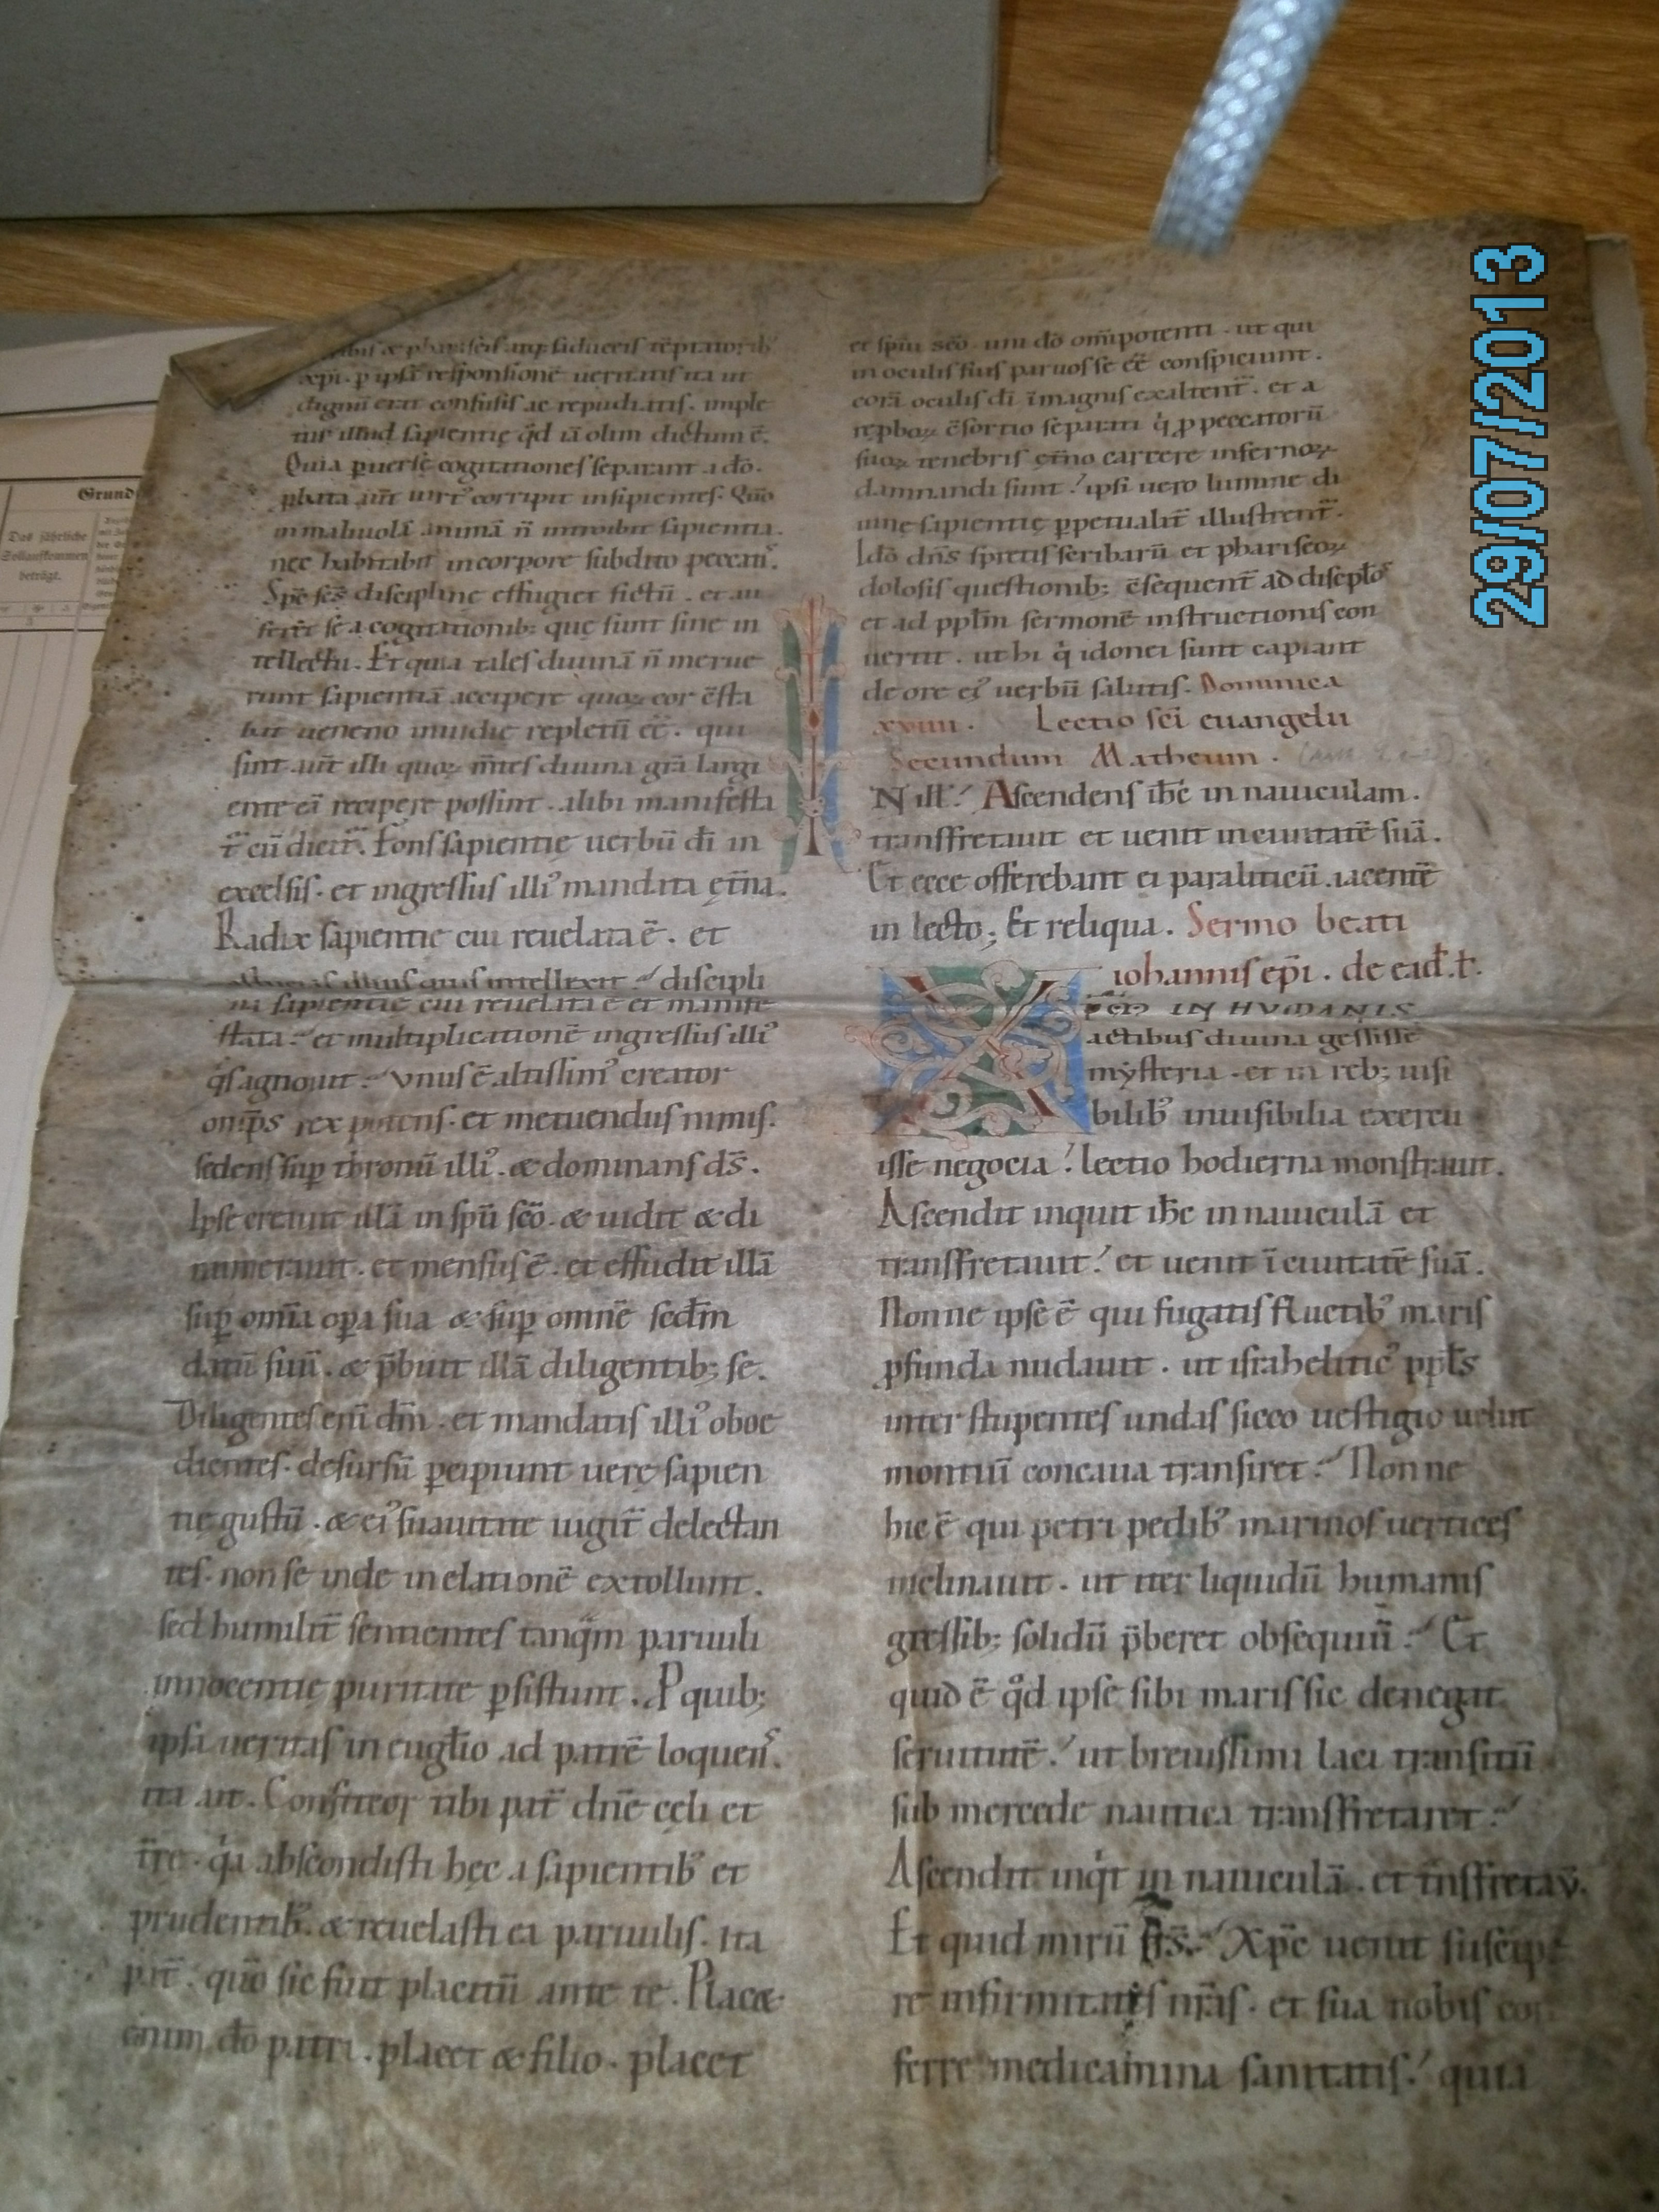 Grund
Das jährliche
Sollaufkommen
beträgt.
tur illud sapientię qd iā olim dictum ē.
Quia ꝑuersę cogitationes separant a dō.
corripit insipientes. Qm̄o
in maliuolā animā n̄ introibit sapientia.
nec habitabit in corpore subdito peccatis.
Spc̄ sc̄s disciplinę effugiet fictū. et au
feret se a cogitationib; quę sunt sine in
tellectu. Et quia tales diuinā n̄ merue
runt sapientiā accipere quoꝝ cor c̄sta
bat ueneno inuidię repletū ēē. qui
sint aūt illi quoꝝ m̄tes diuina grā largi
ente eā recipere possint. alibi manifesta
t̄ cū dicit̄. Fons sapientię uerbū dī in
excelsis. et ingressus illi' mandata ęt̄na.
Radix sapientię cui reuelata ē. et
astutias illius quis intellexit ? discipli
na sapientię cui reuelata ē et manife
stata ? et multiplicationē ingressus illi'
q̇s agnouit ? Vnus ē altissim' creator
omp̄s rex potens. et metuendus nimis.
sedens suꝑ thronū illi'. & dominans ds̄.
Ipse creauit illā in spū scō. & uidit & di
numerauit. et mensus ē. et effudit illā
suꝑ omīa oꝑa sua & suꝑ omnē sedm̄
datū suū. & p̄buit illā diligentib; se.
Diligentes eni dm̄. et mandatis illi' oboe
dientes. desursū ꝑcipiunt uerę sapien
tię gustū. & ei' suauitate iugit̄ delectan
tes. non se inde in elationē extollunt.
sed humilit̄ sentientes tanqm̄ paruuli
innocentię puritate ꝑsistunt. P quib;
ipsa ueritas in eugl̄io ad patrē loquens.
ita ait. Confiteor tibi pat̄ dn̄e cęli et
t̄re. q̇a abscondisti hęc a sapientib' et
prudentib'. & reuelasti ea paruulis. ita
pat̄. qm̄o sic fuit placitū ante te. Place
enim dō patri. placet & filio. placet
et spū scō uni dō om̄ipotenti. ut qui
in oculis suis paruos se ēē conspiciunt.
corā oculis dī ī magnis exaltent̄. et a
reꝓboꝝ c̄sortio separati q̇ ꝓ peccatorū
suoꝝ tenebris ęt̄no carcere infernoꝝ
damnandi sunt ! ipsi uero lumine di
uinę sapientię ꝑpetualit̄ illustrent̄.
Idō dn̄s spretis scribarū et phariseoꝝ
dolosis questionib; c̄sequent̄ ad discipl̄os
et ad ppl̄m sermonē instructionis con
uertit. ut hi q̇ idonei sunt capiant
de ore ei' uerbū salutis. Dominica
xviiii. Lectio sc̄i euangelii
Secundum Matheum.
N ill'. Ascendens ih̄c in nauiculam.
transfretauit et uenit in ciuitatē suā.
Et ecce offerebant ei paraliticū iacentē
in lecto; Et reliqua. Sermo beati
iohannis epī. de ead. ł.
XPM̄ IN HVMANIS
actibus diuina gessisse
mysteria. et in reb; uisi
bilib' inuisibilia exercu
isse negocia ! lectio hodierna monstrauit.
Ascendit inquit ih̄c in nauiculā et
transfretauit ! et uenit ī ciuitatē suā.
Nonne ipse ē qui fugatis fluctib' maris
ꝓfunda nudauit. ut israhelitic' ppl̄s
inter stupentes undas sicco uestigio uelut
montiū concaua transiret ? Nonne
hic ē qui petri pedib' marinos uertices
inclinauit. ut iter liquidū humanis
gressib; solidū p̄beret obsequiū ? Et
quid ē qd ipse sibi maris sic denegat
seruitutē ! ut breuissimi laci transitū
sub mercede nautica transfretaret ?
Ascendit inq̇t in nauiculā. et t̄nsfretau̅.
Et quid mirū fr̄s ? Xp̄c uenit suscipe
re infirmitatis nr̄as. et sua nobis con
ferre medicamina sanitatis ! quia
29/07/2013